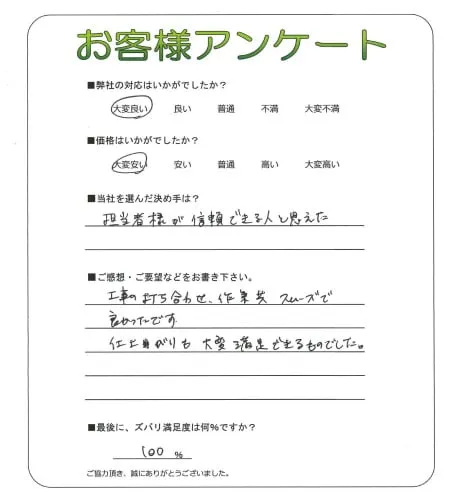 お客様アンケート
■弊社の対応はいかがでしたか？
大変良い 良い 普通 不満 大変不満
■価格はいかがでしたか？
大変安い 安い 普通 高い 大変高い
■当社を選んだ決め手は？
担当者様が信頼できる人と思えた
■ご感想・ご要望などをお書き下さい。
工事の打ち合わせ、作業共 スムーズで
良かったです
仕上がりも 大変満足できるものでした。
■最後に、ズバリ満足度は何%ですか？
100 %
ご協力頂き、誠にありがとうございました。